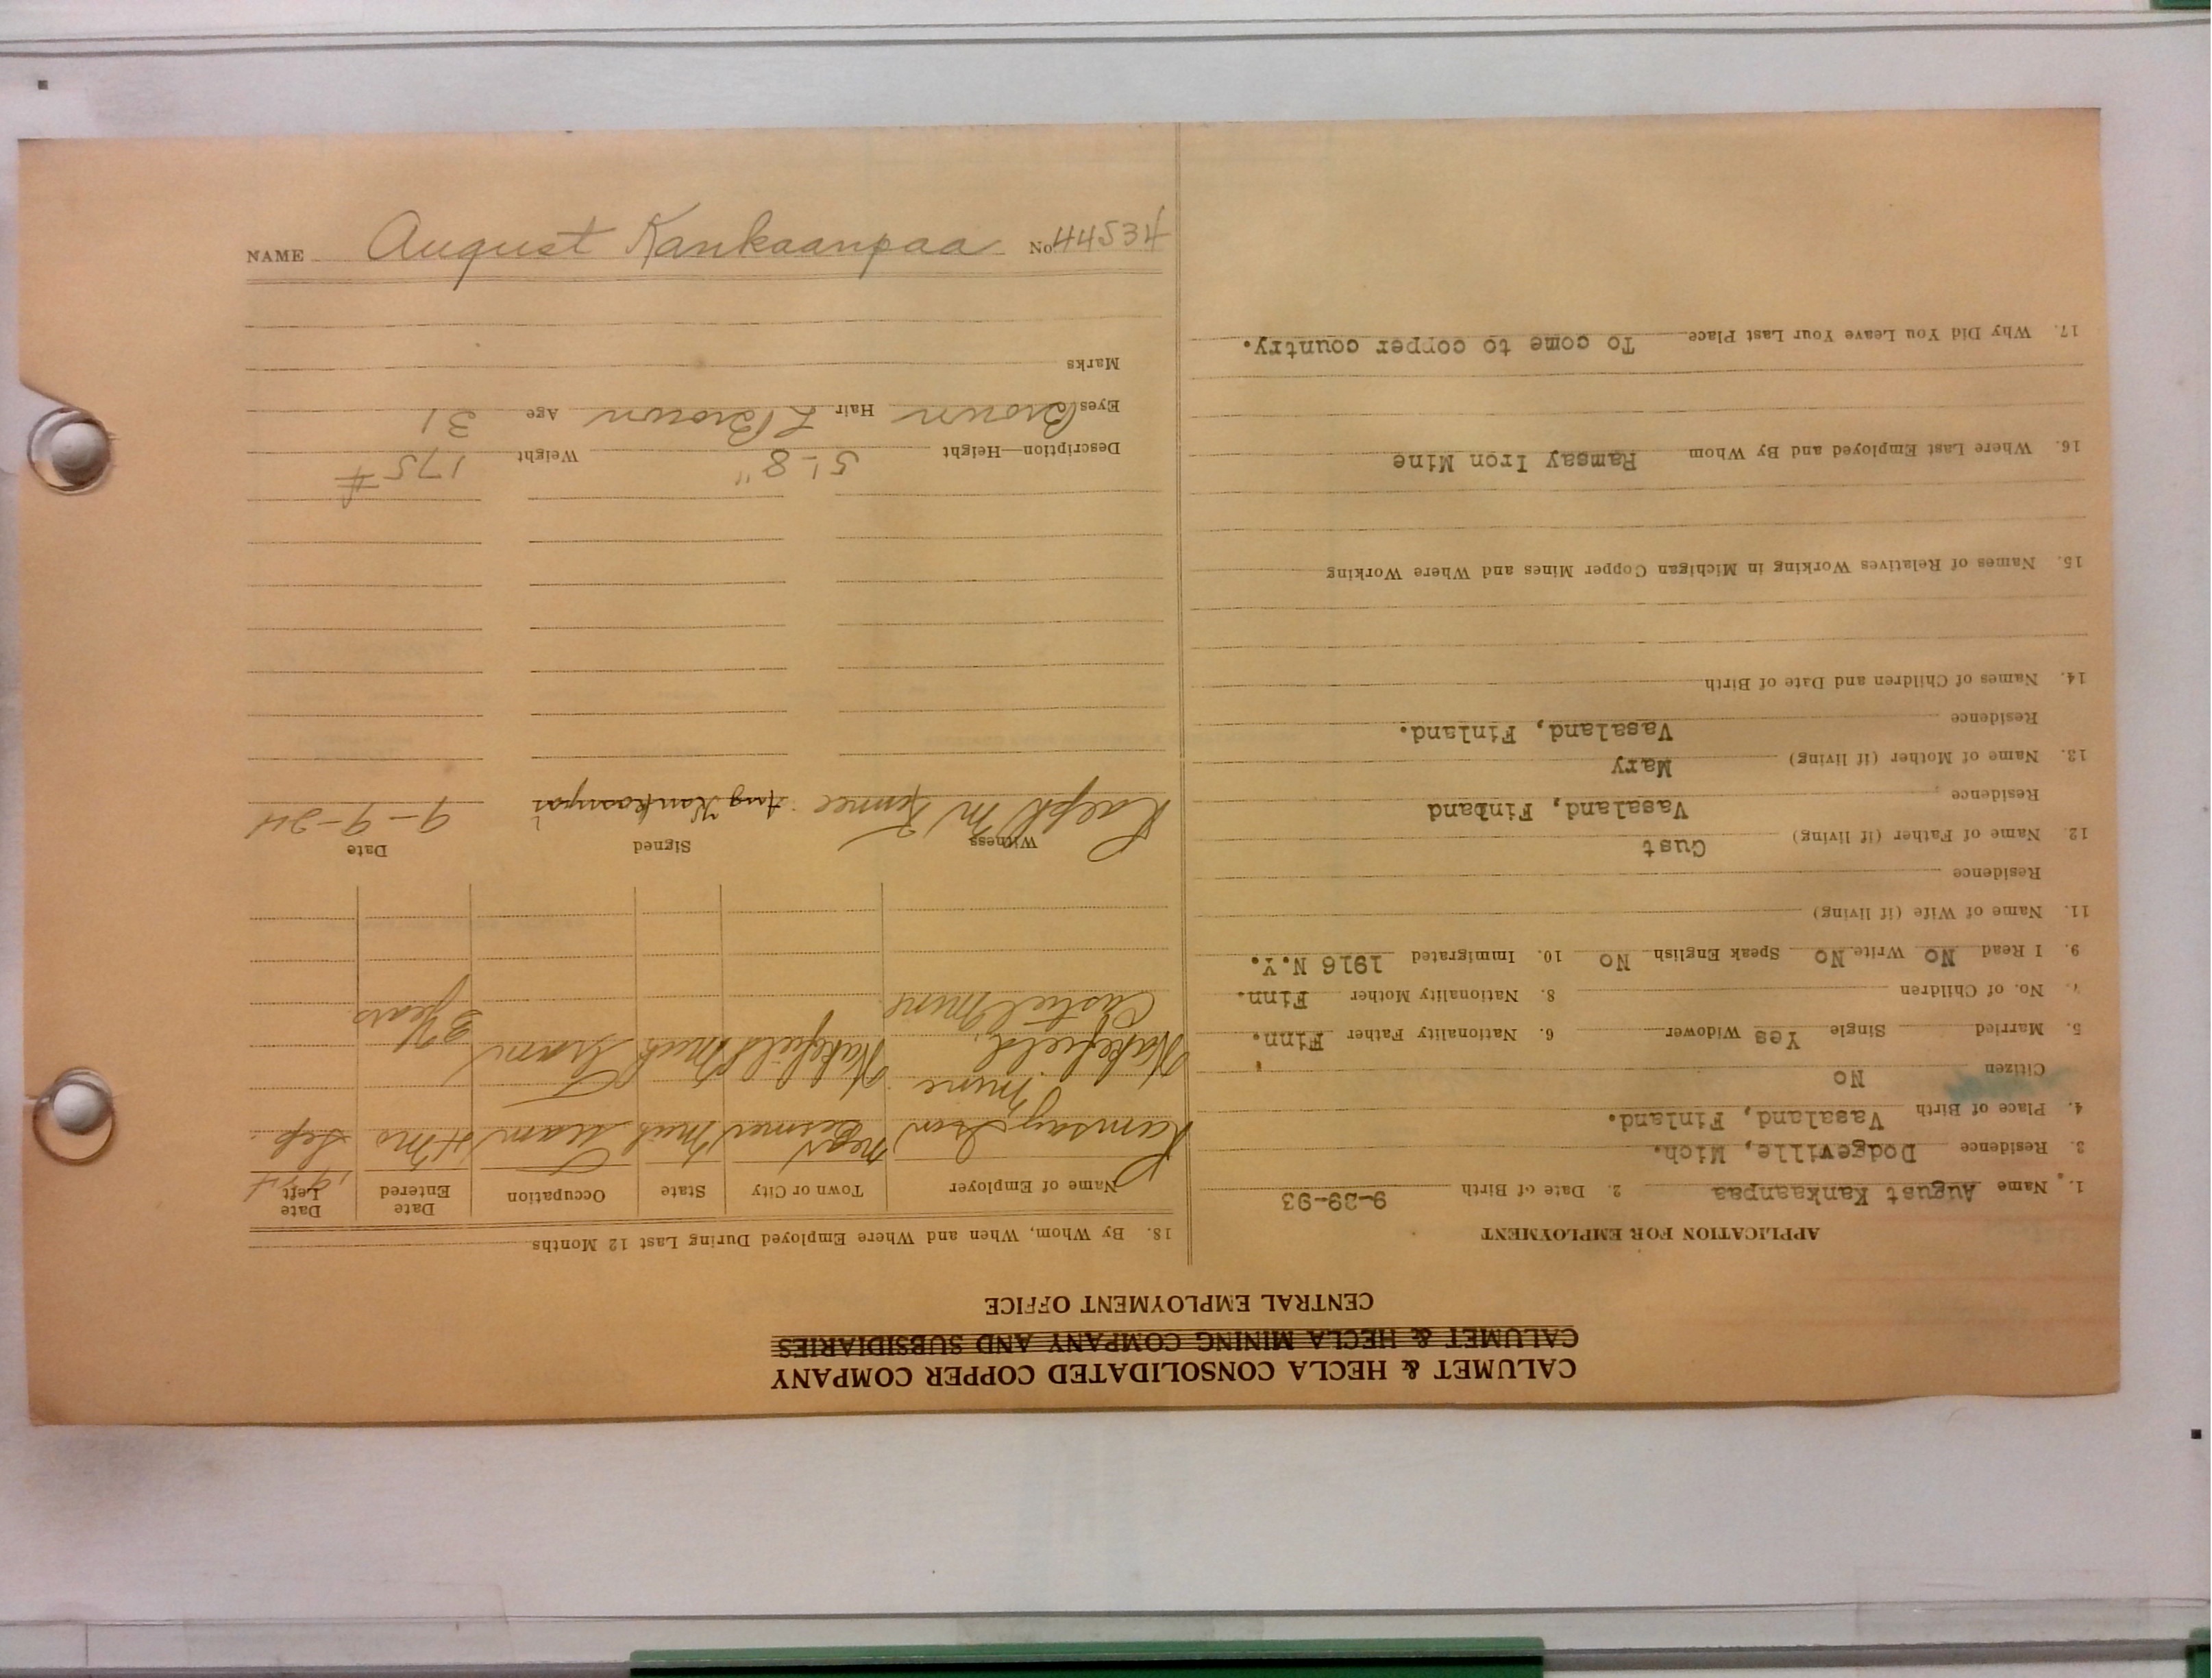 CALUMET & HECLA CONSOLIDATED COPPER COMPANY
CALUMET & HECLA MINING COMPANY AND SUBSIDIARIES
CENTRAL EMPLOYMENT OFFICE
APPLICATION FOR EMPLOYMENT
1. Name August Kankaanpaa 2. Date of Birth 9-29-93
3. Residence Dodgeville, Mich.
4. Place of Birth Vasaland, Finland.
Citizen No
5. Married Single Yes Widower 6. Nationality Father Finn.
7. No. of Children 8. Nationality Mother Finn.
9. I Read No Write No Speak English No 10. Immigrated 1916 N.Y.
11. Name of Wife (if living)
Residence
12. Name of Father (if living) Gust
Residence Vasaland, Finband
13. Name of Mother (if living) Mary
Residence Vasaland, Finland.
14. Names of Children and Date of Birth
15. Names of Relatives Working in Michigan Copper Mines and Where Working
16. Where Last Employed and By Whom Ramsay Iron Mine
17. Why Did You Leave Your Last Place To come to copper country.
18. By Whom, When and Where Employed During Last 12 Months
Name of Employer Town or City State Occupation Date Entered Date Left
Ramsay Iron Mine near Bessmer Mich Tram 4 Mo Sep.
Wakefield Wakefield Mich Tram 3 years
Mine
Witness Signed Date
Ralph M Aug Kankaanpaa 9-9-24
Description—Height 5'-8" Weight 175 #
Eyes Brown Hair L Brown Age 31
Marks
NAME August Kankaanpaa No. 44534